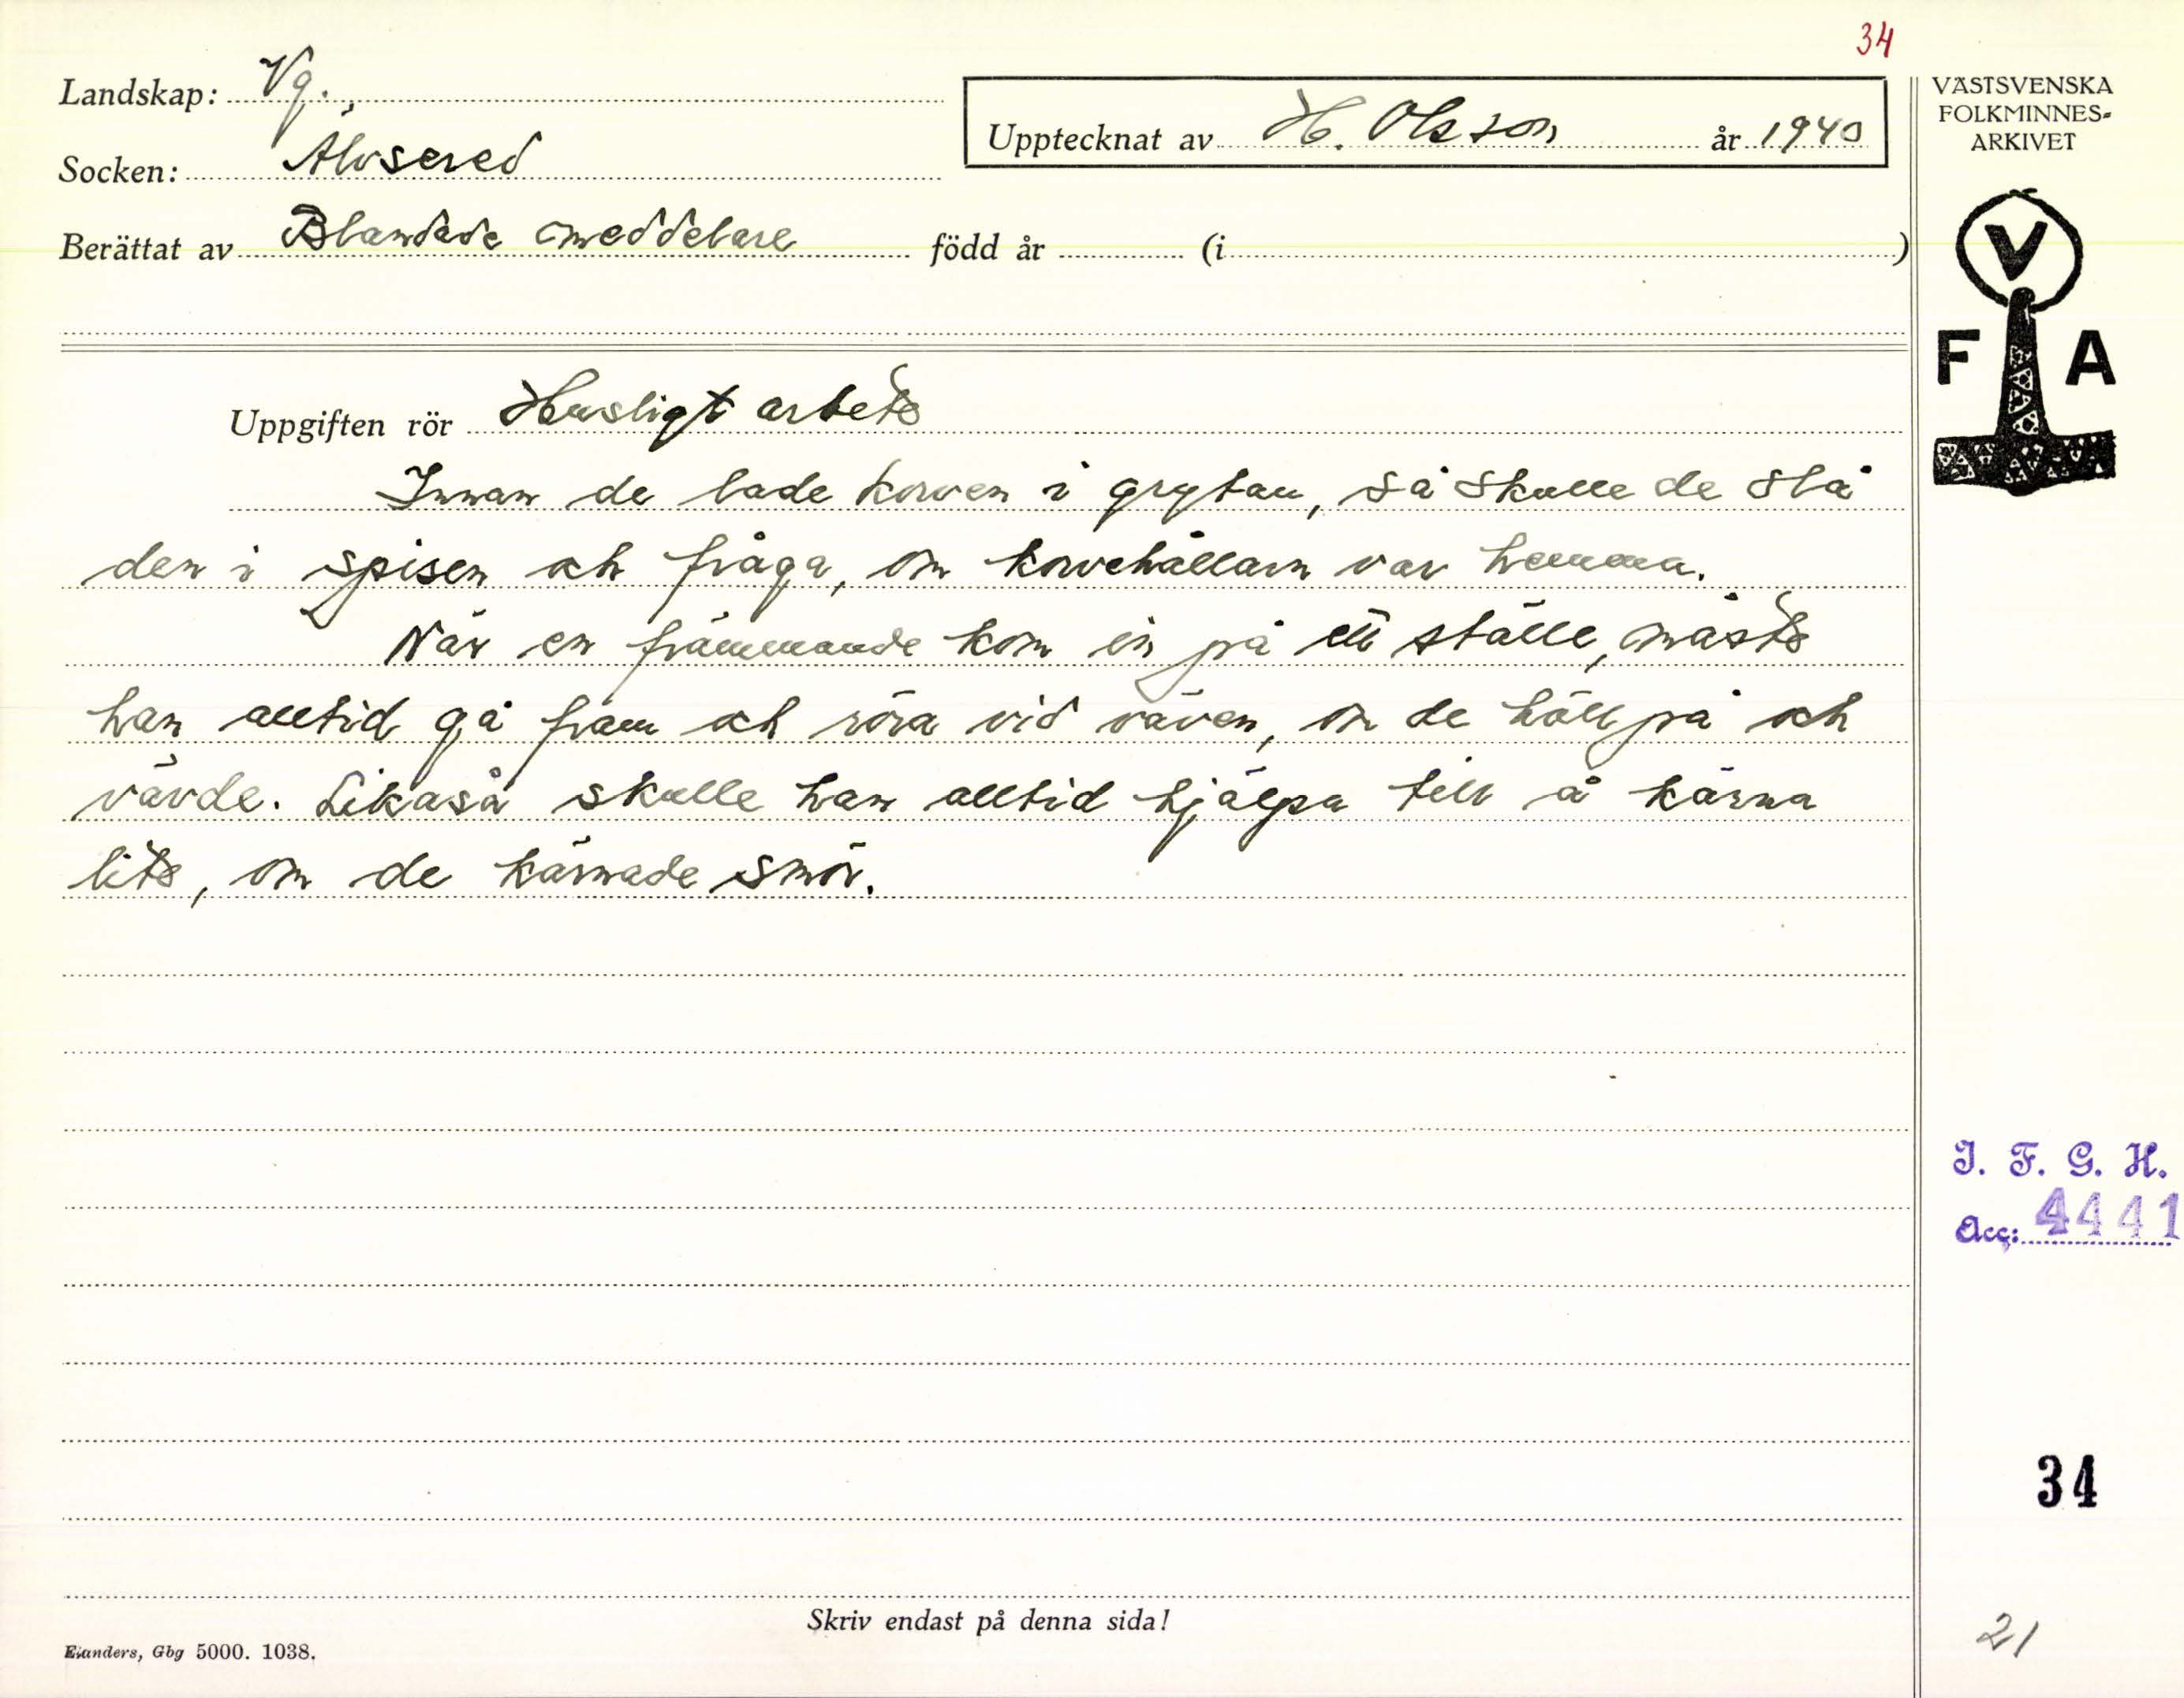 34
Landskap: Vg.
Socken: Älvsered
Upptecknat av H. Olsson år 1940
Berättat av Blandade meddelare född år (i )
VÄSTSVENSKA
FOLKMINNES-
ARKIVET
V
F A
Uppgiften rör Husligt arbete
Innan de lade korven i grytan, så skulle de slå
den i spisen och fråga, om korvehållarn var hemma.
När en främmande kom in på ett ställe, måste
han alltid gå fram och röra vid väven, om de höll på och
vävde. Likaså skulle han alltid hjälpa till å kärna
lite, om de kärnade smör.
I. F. G. H.
Acc: 4441
34
Skriv endast på denna sida!
Elanders, Gbg 5000. 1038.
21